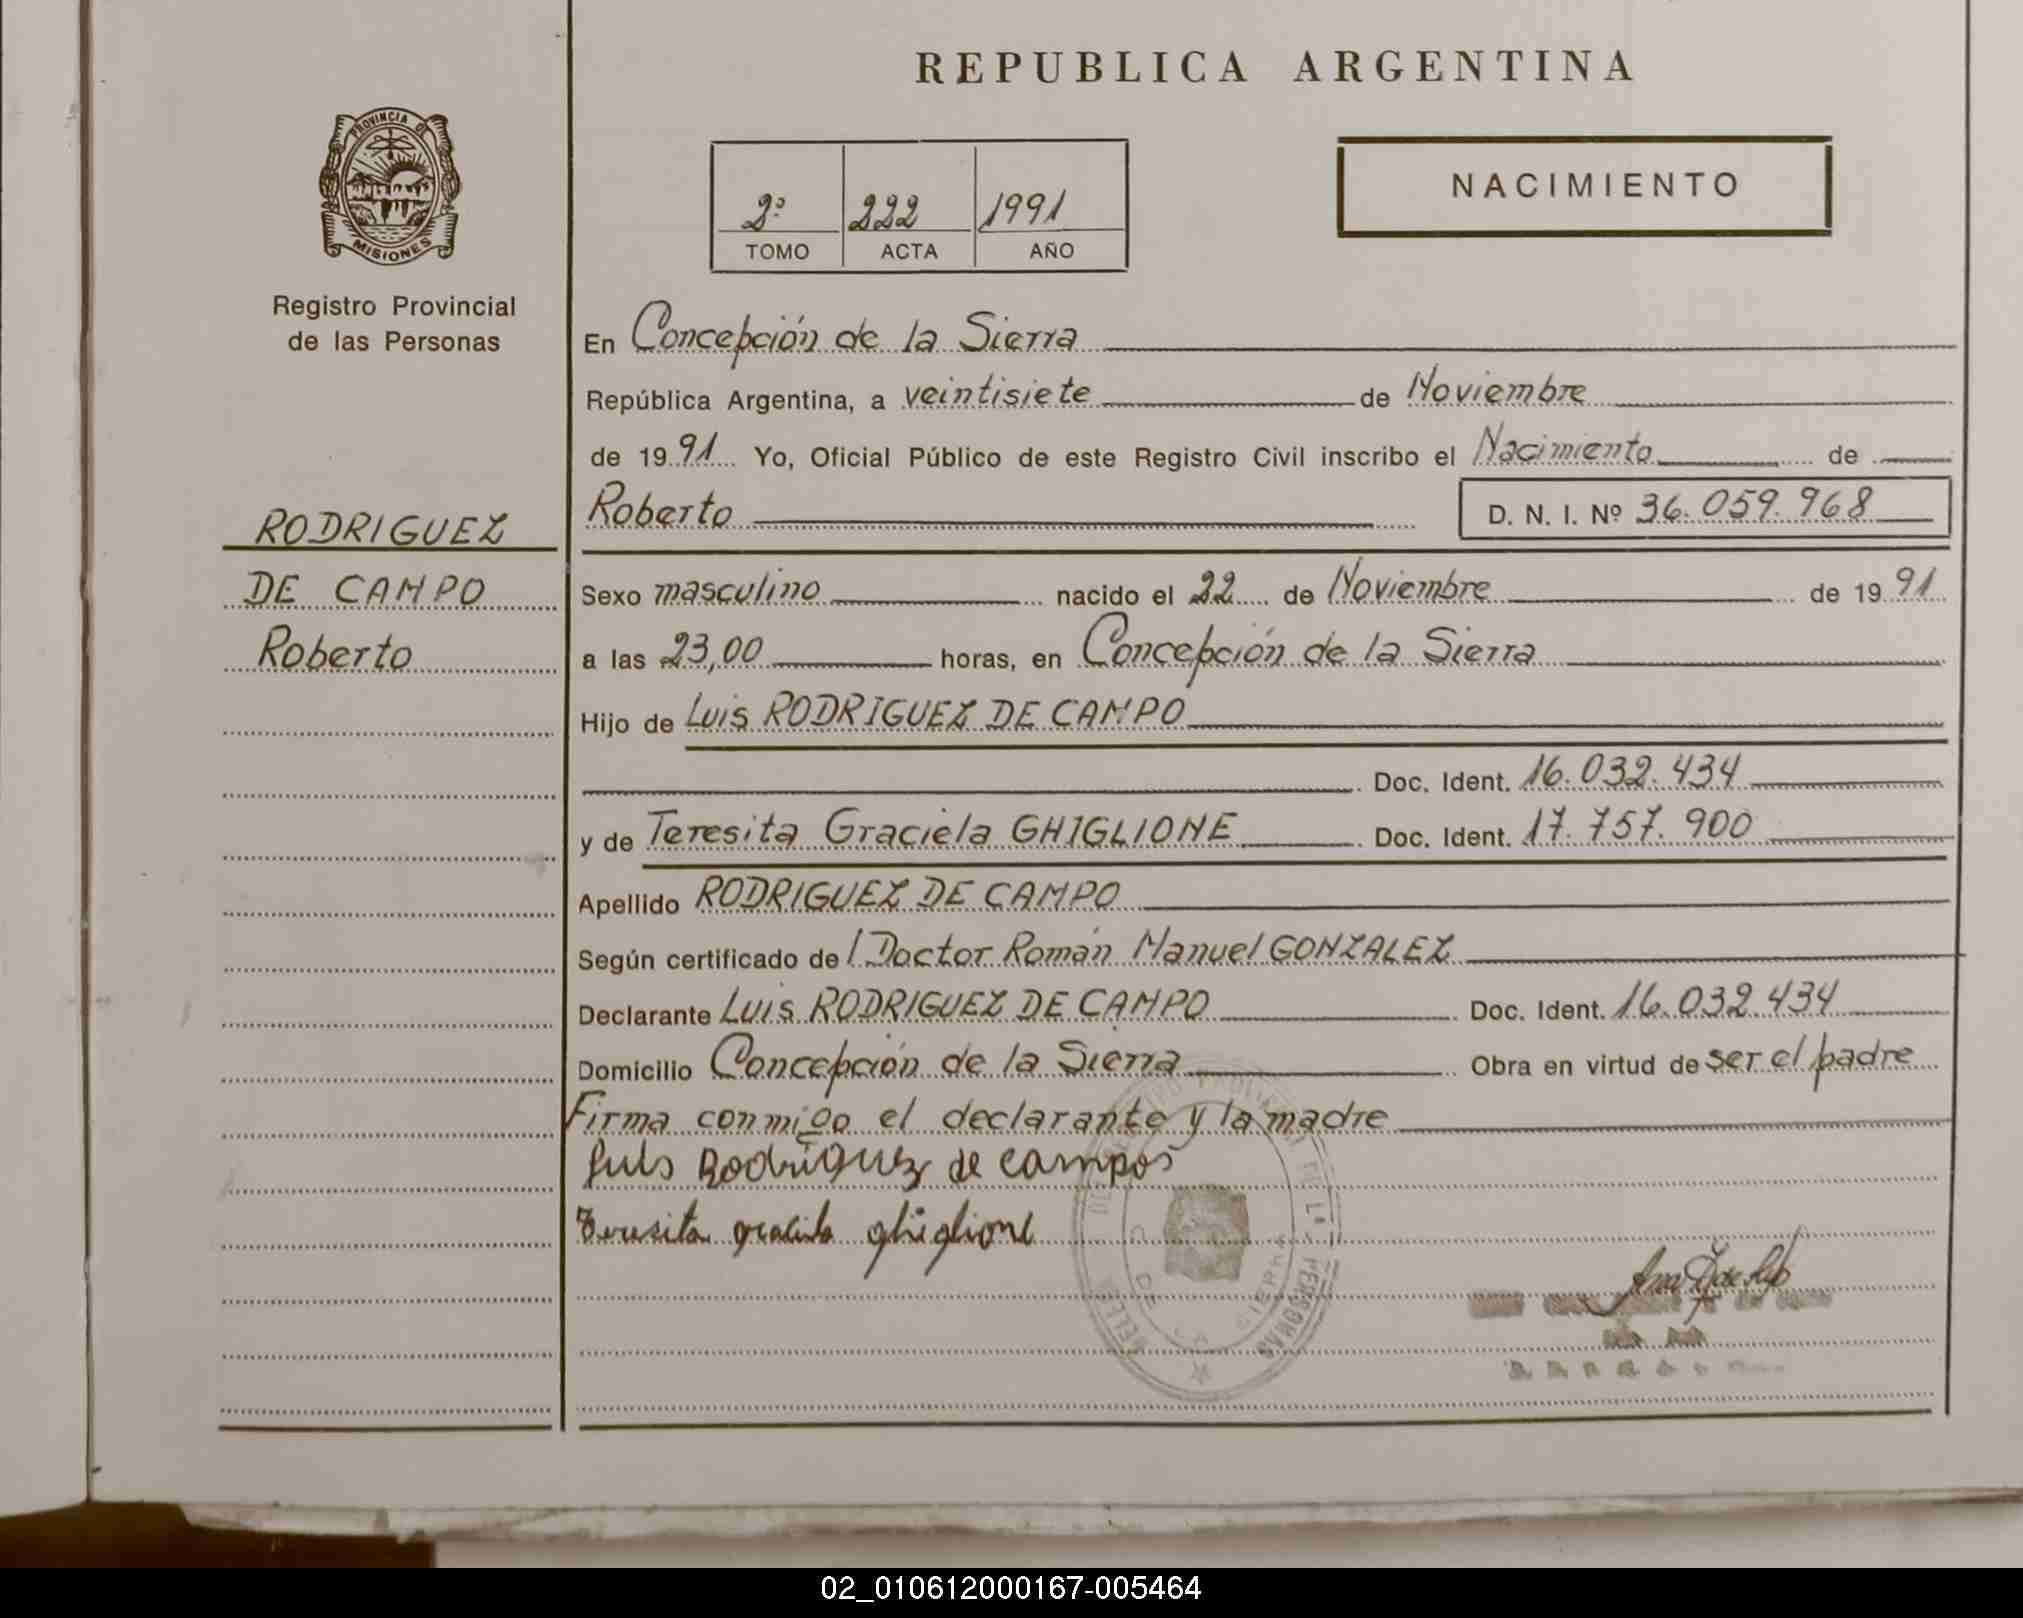 REPUBLICA ARGENTINA
PROVINCIA DE
MISIONES
Registro Provincial
de las Personas
2º 222 1991
TOMO ACTA AÑO
NACIMIENTO
RODRIGUEZ
DE CAMPO
Roberto
En Concepción de la Sierra
República Argentina, a veintisiete de Noviembre
de 1991 Yo, Oficial Público de este Registro Civil inscribo el Nacimiento de
Roberto D. N. I. Nº 36.059.968
Sexo masculino nacido el 22 de Noviembre de 1991
a las 23,00 horas, en Concepción de la Sierra
Hijo de Luis RODRIGUEZ DE CAMPO
Doc. Ident. 16.032.434
y de Teresita Graciela GHIGLIONE Doc. Ident. 17.757.900
Apellido RODRIGUEZ DE CAMPO
Según certificado del Doctor Román Manuel GONZALEZ
Declarante Luis RODRIGUEZ DE CAMPO Doc. Ident. 16.032.434
Domicilio Concepción de la Sierra Obra en virtud de ser el padre
Firma conmigo el declarante y la madre
Luis Rodriguez de campos
Teresita graciela ghiglione
DE LAS PERSONAS
SIERRA
02_010612000167-005464